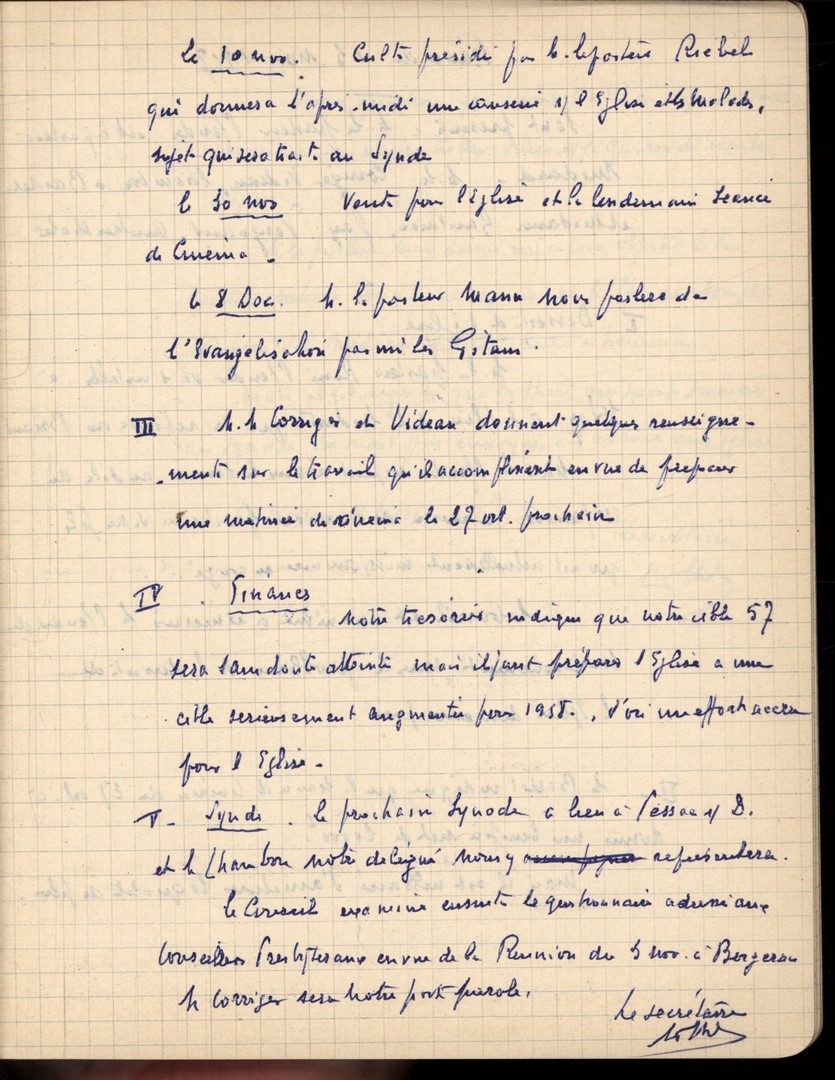 Le 10 nov. Culte présidé par M. le pasteur Riebel
qui donnera l'après-midi une causerie s/ l'Eglise et les Malades,
sujet qui sera traité au Synode
le 30 nov Vente pour l'Eglise et le lendemain séance
de Cinéma.
le 8 Dec. M. le pasteur Mann nous parlera de
l'Evangélisation parmi les Gitans.
III M. M Corriger et Videau donnent quelques renseigne-
ments sur le travail qu'ils accomplissent en vue de préparer
une matinée de cinéma le 27 oct. prochain
IV Finances
Notre trésorier indique que notre cible 57
sera sans doute atteinte mais il faut préparer l'Eglise à une
cible sérieusement augmentée pour 1958., d'où un effort accru
pour l'Eglise.
V - Synode. le prochain Synode a lieu à Pessac s/ D.
et M Chambon notre délégué nous y représentera.
Le Conseil examine ensuite le questionnaire adressé aux
Conseillers Presbytéraux en vue de la Réunion du 3 nov. à Bergerac
M Corriger sera notre porte parole.
Le secrétaire